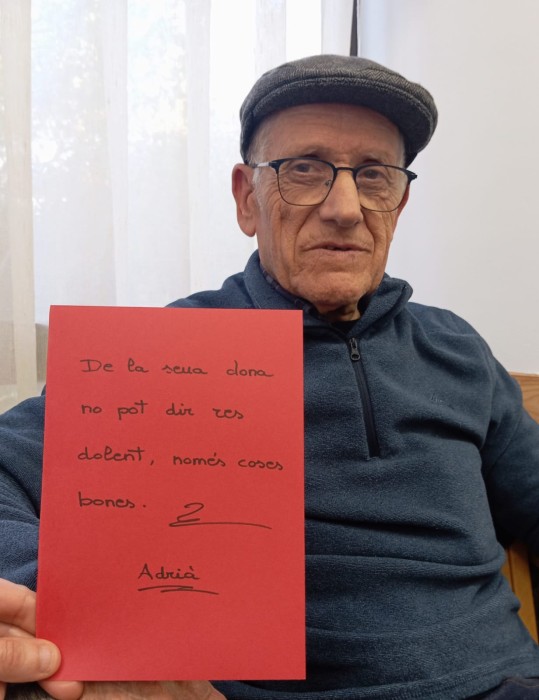 De la seua dona
no pot dir res
dolent, només coses
bones. 2
Adrià